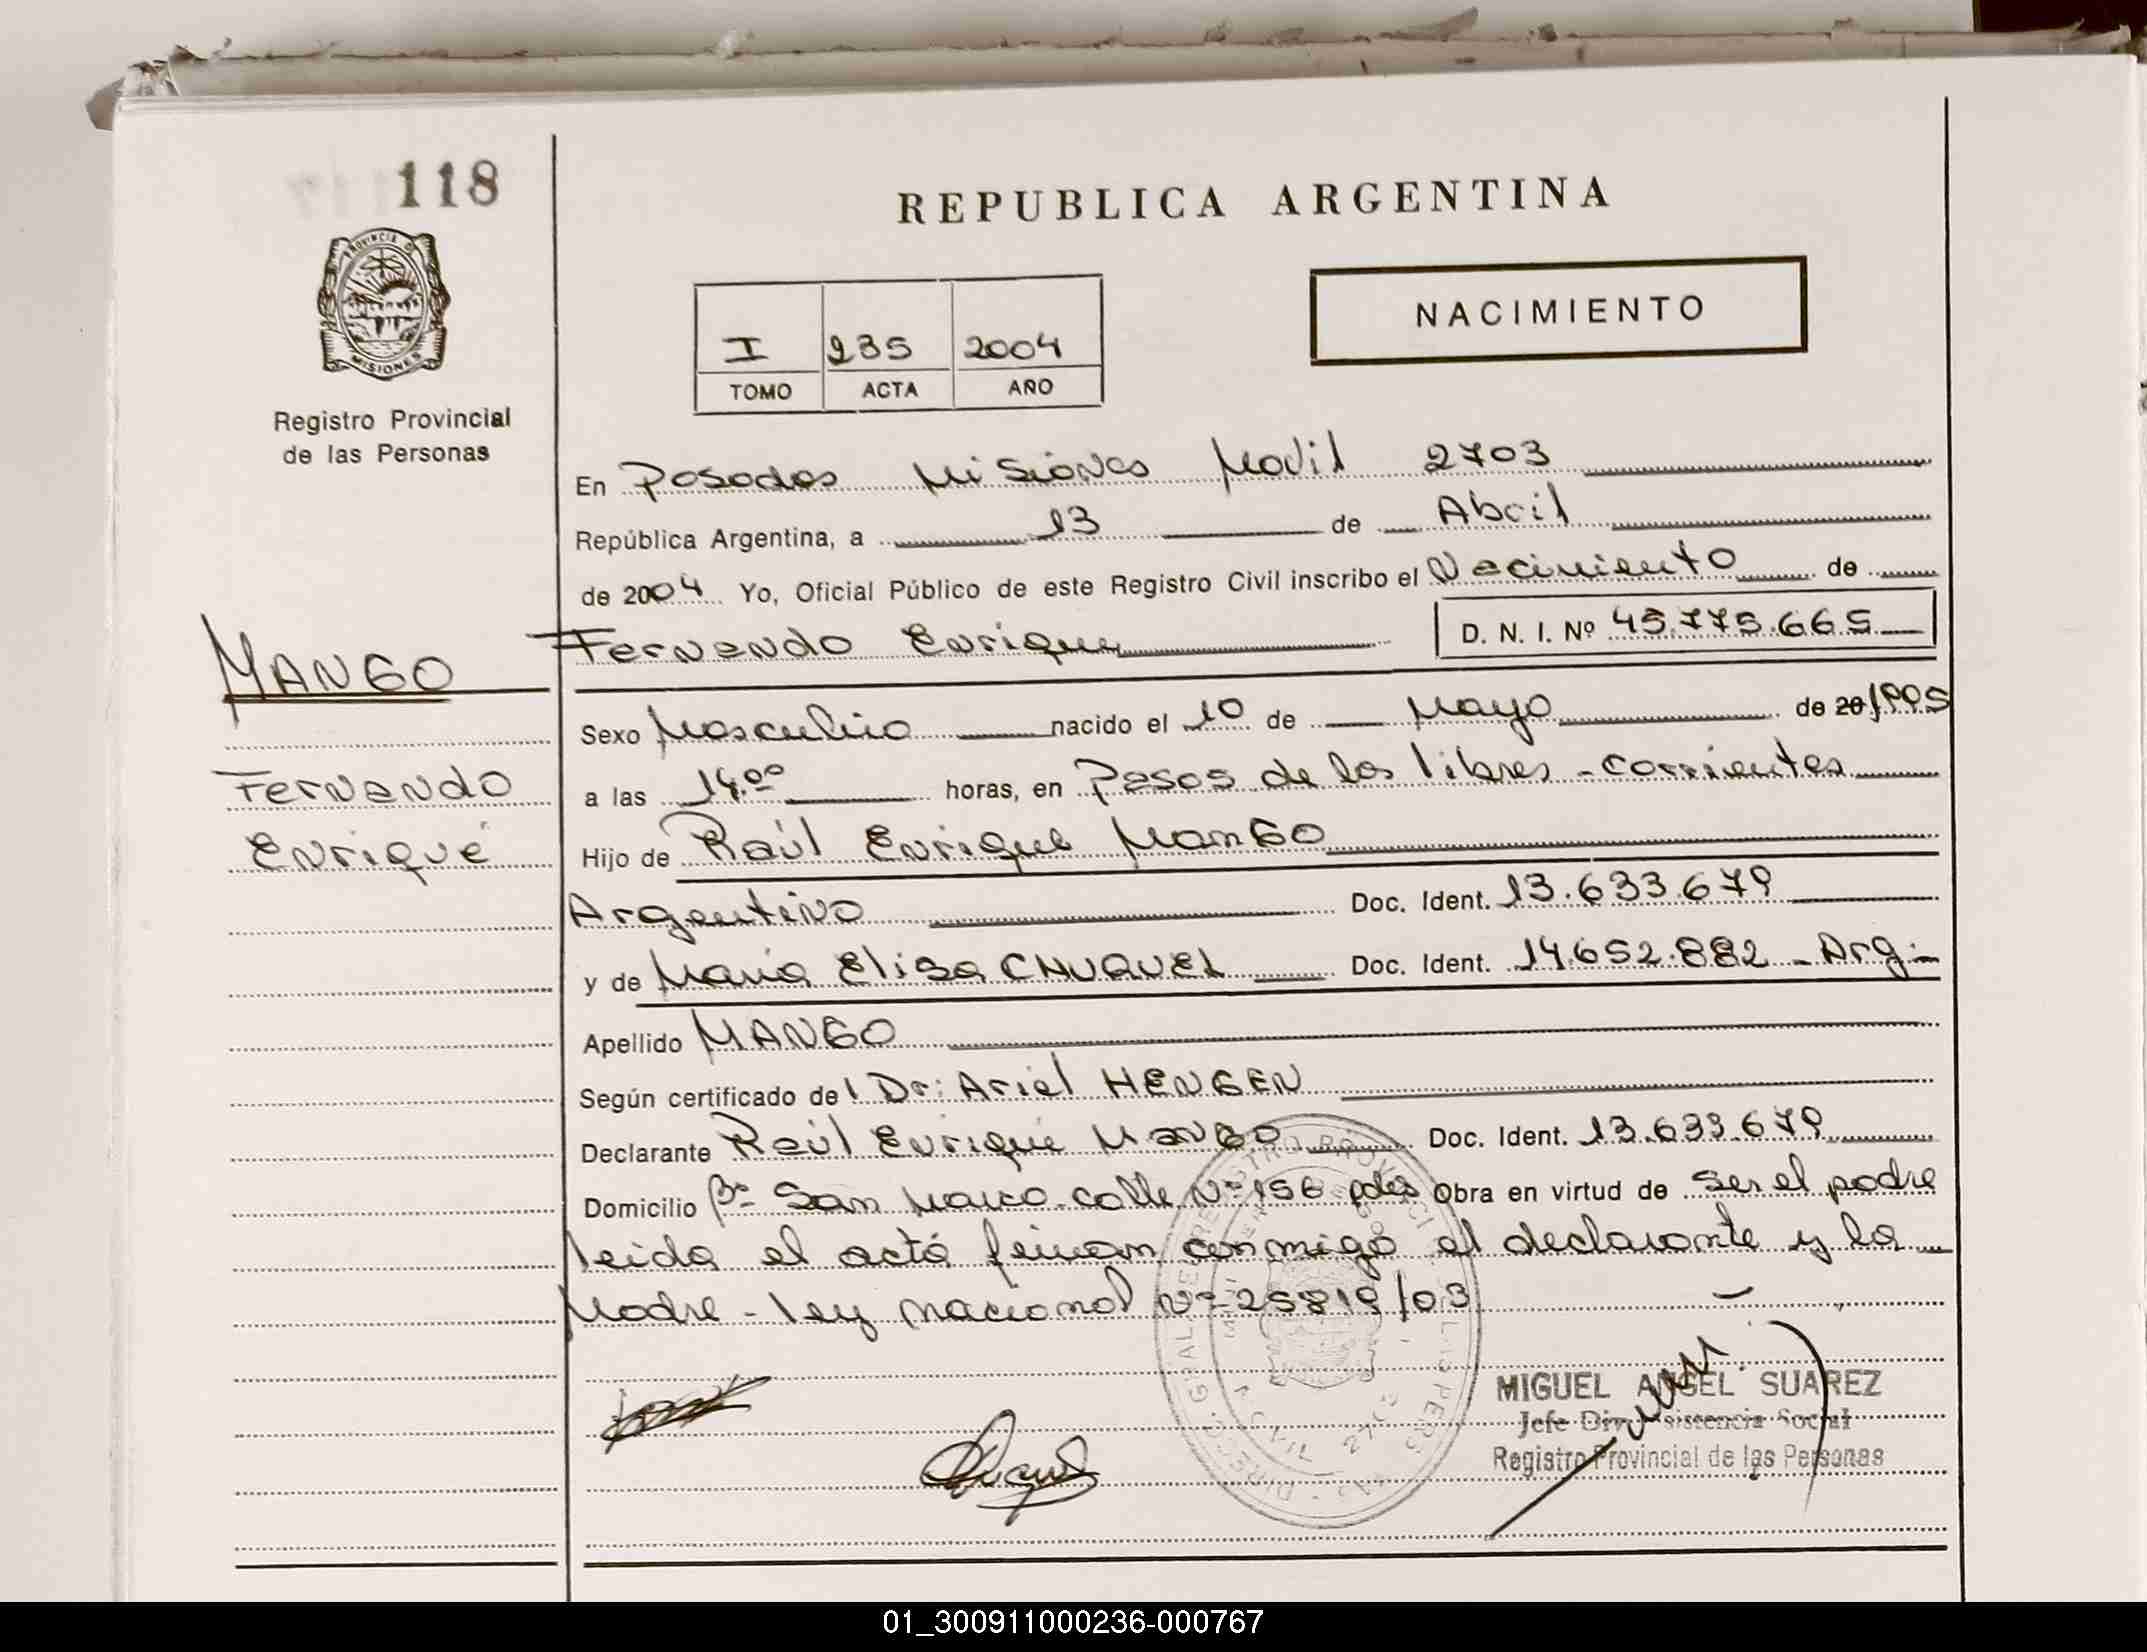 118
REPUBLICA ARGENTINA
PROVINCIA D MISIONES
NACIMIENTO
I 235 2004
TOMO ACTA AÑO
Registro Provincial
de las Personas
En Posadas Misiones Movil 2703
República Argentina, a 13 de Abril
de 2004 Yo, Oficial Público de este Registro Civil inscribo el Nacimiento de
Fernando Enrique D. N. I. Nº 45.775.665
MANGO
Sexo Masculino nacido el 10 de Mayo de 20/1995
Fernando
a las 14.00 horas, en Pasos de los libres - corrientes
Enrique
Hijo de Raúl Enrique Mango
Argentino Doc. Ident. 13.633.679
y de María Elisa CHUQUEL Doc. Ident. 14.652.882 - Arg.-
Apellido MANGO
Según certificado del Dr: Ariel HENGEN
Declarante Raúl Enrique Mango Doc. Ident. 13.633.679
Domicilio Bº San Marco calle Nº 156 pdas Obra en virtud de ser el padre
leida el acta firman conmigo el declarante y la
Madre - ley nacional Nº 25819/03
MIGUEL ANGEL SUAREZ
Jefe Div. Asistencia Social
Registro Provincial de las Personas
01_300911000236-000767